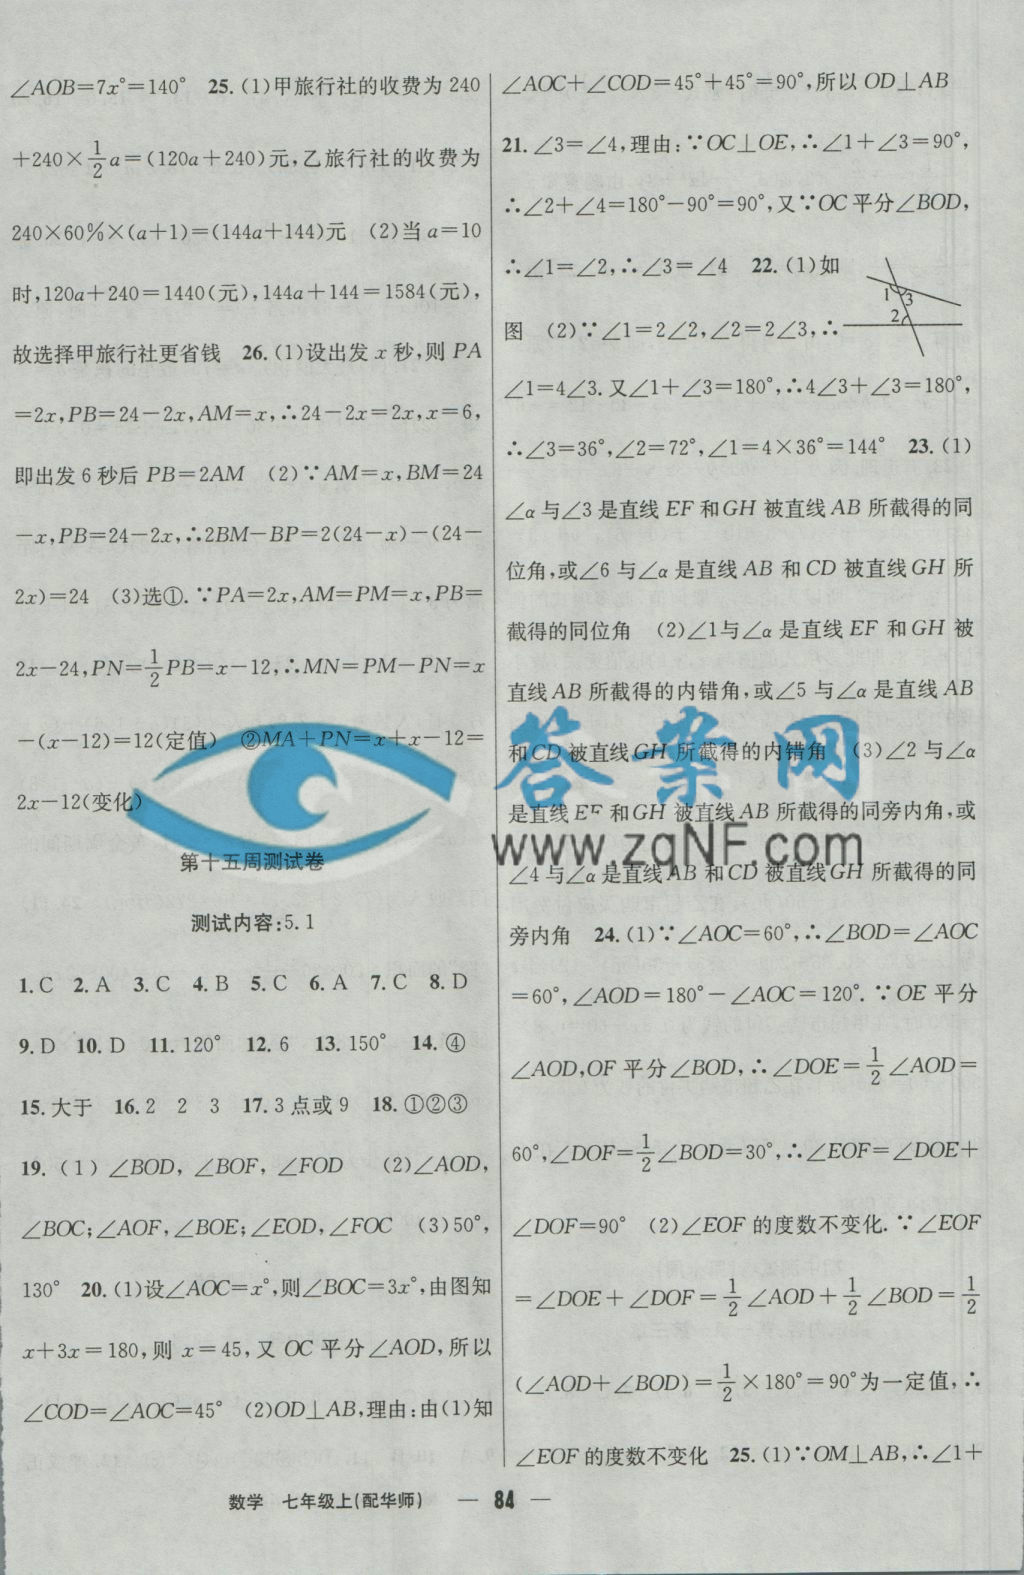 ∠AOB=7x°=140° 25.(1)甲旅行社的收费为240
+240×1/2a=(120a+240)元,乙旅行社的收费为
240×60%×(a+1)=(144a+144)元 (2)当a=10
时,120a+240=1440(元),144a+144=1584(元),
故选择甲旅行社更省钱 26.(1)设出发x秒,则PA
=2x,PB=24-2x,AM=x,∴24-2x=2x,x=6,
即出发6秒后PB=2AM (2)∵AM=x,BM=24
-x,PB=24-2x,∴2BM-BP=2(24-x)-(24-
2x)=24 (3)选①.∵PA=2x,AM=PM=x,PB=
2x-24,PN=1/2PB=x-12,∴MN=PM-PN=x
-(x-12)=12(定值) ②MA+PN=x+x-12=
2x-12(变化)
第十五周测试卷
测试内容:5.1
1.C 2.A 3.C 4.B 5.C 6.A 7.C 8.D
9.D 10.D 11.120° 12.6 13.150° 14.④
15.大于 16.2 2 3 17.3点或9 18.①②③
19.(1)∠BOD,∠BOF,∠FOD (2)∠AOD,
∠BOC;∠AOF,∠BOE;∠EOD,∠FOC (3)50°,
130° 20.(1)设∠AOC=x°,则∠BOC=3x°,由图知
x+3x=180,则x=45,又OC平分∠AOD,所以
∠COD=∠AOC=45° (2)OD⊥AB,理由:由(1)知
∠AOC+∠COD=45°+45°=90°,所以OD⊥AB
21.∠3=∠4,理由:∵OC⊥OE,∴∠1+∠3=90°,
∴∠2+∠4=180°-90°=90°,又∵OC平分∠BOD,
∴∠1=∠2,∴∠3=∠4 22.(1)如
1 3
2
图 (2)∵∠1=2∠2,∠2=2∠3,∴
∠1=4∠3.又∠1+∠3=180°,∴4∠3+∠3=180°,
∴∠3=36°,∠2=72°,∠1=4×36°=144° 23.(1)
∠α与∠3是直线EF和GH被直线AB所截得的同
位角,或∠6与∠α是直线AB和CD被直线GH所
截得的同位角 (2)∠1与∠α是直线EF和GH被
直线AB所截得的内错角,或∠5与∠α是直线AB
和CD被直线GH所截得的内错角 (3)∠2与∠α
是直线EF和GH被直线AB所截得的同旁内角,或
∠4与∠α是直线AB和CD被直线GH所截得的同
旁内角 24.(1)∵∠AOC=60°,∴∠BOD=∠AOC
=60°,∠AOD=180°-∠AOC=120°.∵OE平分
∠AOD,OF平分∠BOD,∴∠DOE=1/2∠AOD=
60°,∠DOF=1/2∠BOD=30°,∴∠EOF=∠DOE+
∠DOF=90° (2)∠EOF的度数不变化.∵∠EOF
=∠DOE+∠DOF=1/2∠AOD+1/2∠BOD=1/2
(∠AOD+∠BOD)=1/2×180°=90°为一定值,∴
∠EOF的度数不变化 25.(1)∵OM⊥AB,∴∠1+
答案网
www.zqNF.com
数学 七年级上(配华师) — 84 —